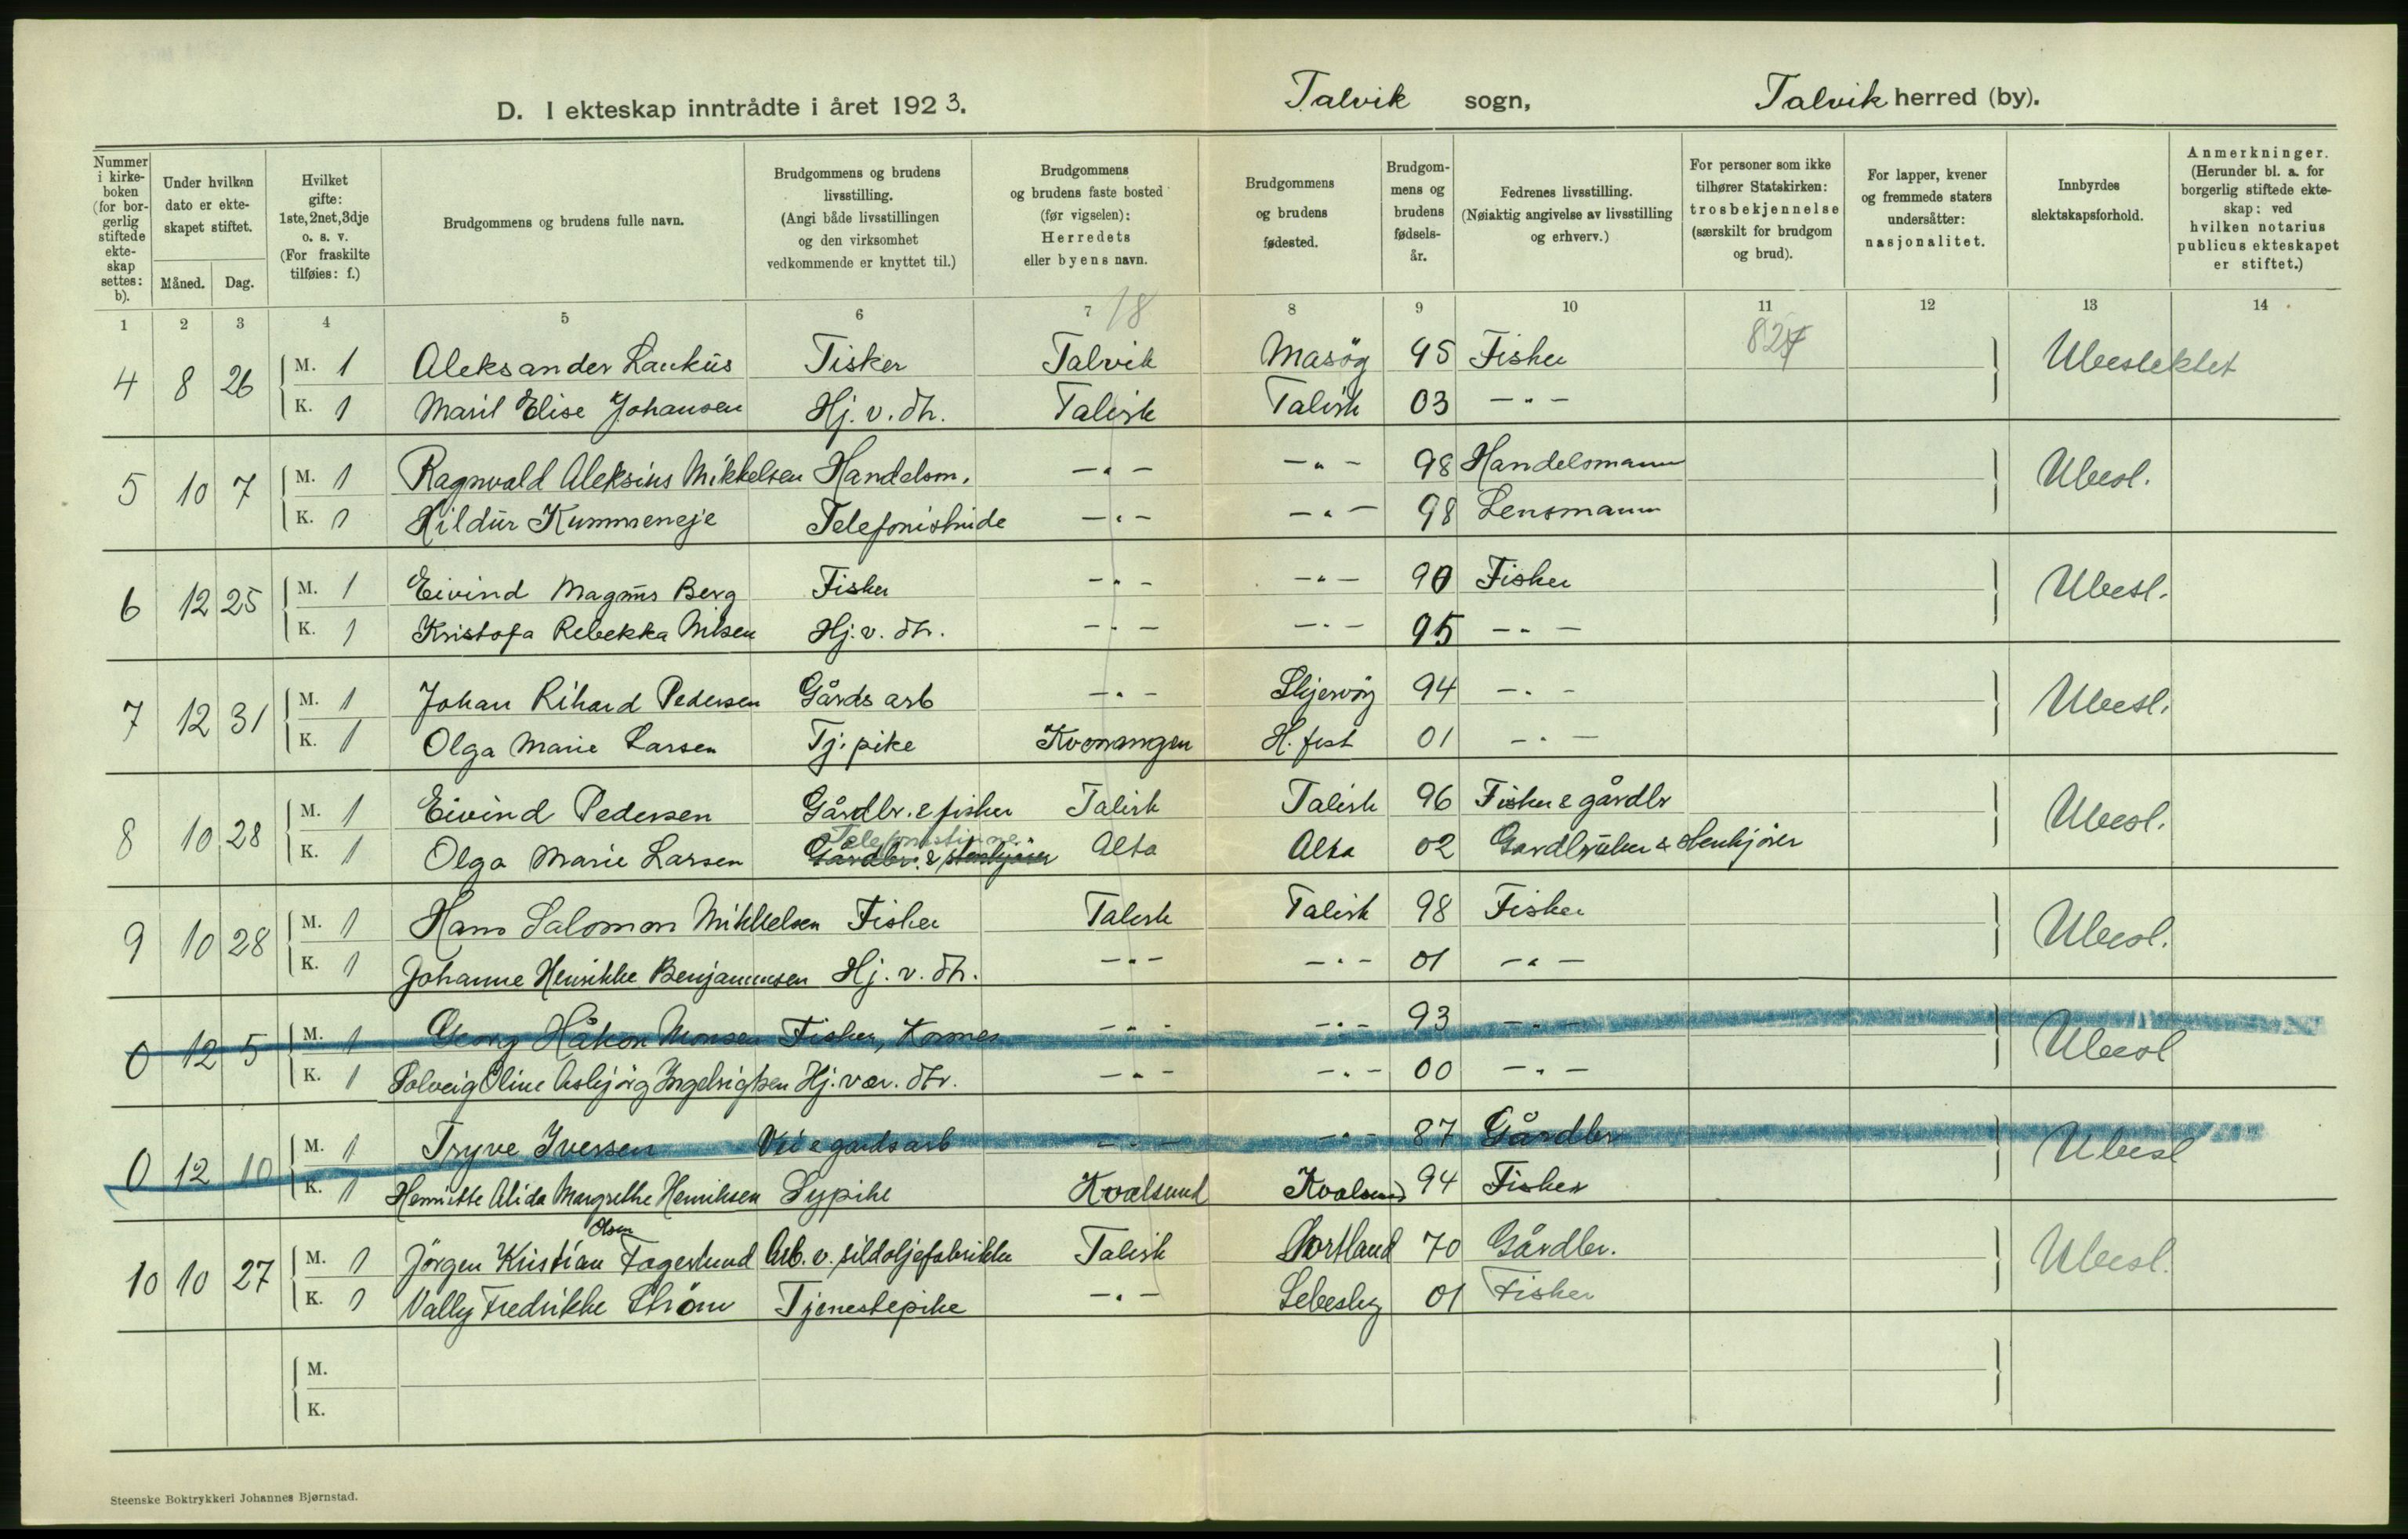 D. I ekteskap inntrådte i året 1923.
Talvik sogn,
Talvik herred (by).
Nummer i kirkeboken (for borgerlig stiftede ekteskap settes: b).
Under hvilken dato er ekteskapet stiftet.
Måned. Dag.
Hvilket gifte: 1ste, 2net, 3dje o. s. v. (For fraskilte tilføies: f.)
Brudgommens og brudens fulle navn.
Brudgommens og brudens livsstilling. (Angi både livsstillingen og den virksomhet vedkommende er knyttet til.)
Brudgommens og brudens faste bosted (før vigselen): Herredets eller byens navn.
Brudgommens og brudens fødested.
Brudgommens og brudens fødselsår.
Fedrenes livsstilling. (Nøiaktig angivelse av livsstilling og erhverv.)
For personer som ikke tilhører Statskirken: trosbekjennelse (særskilt for brudgom og brud).
For lapper, kvener og fremmede staters undersåtter: nasjonalitet.
Innbyrdes slektskapsforhold.
Anmerkninger. (Herunder bl. a. for borgerlig stiftede ekteskap: ved hvilken notarius publicus ekteskapet er stiftet.)
1 2 3 4 5 6 7 18 8 9 10 11 12 13 14
4 8 26 M. 1 Aleksander Laukus Fisker Talvik Masöy 95 Fisker 827 Ubeslektet
K. 1 Maril Elise Johansen Hj. v. dh. Talvik Talvik 03 — " —
5 10 7 M. 1 Ragnvald Aleksius Mikkelsen Handelsm. — " — — " — 98 Handelsmann Ubesl.
K. 1 Hildur Kummeneje Telefonistinde — " — — " — 98 Lensmann
6 12 25 M. 1 Eivind Magnus Berg Fisker — " — — " — 90 Fisker Ubesl.
K. 1 Kristofa Rebekka Nilsen Hj. v. dh. — " — — " — 95 — " —
7 12 31 M. 1 Johan Rihard Pedersen Gårds arb — " — Skjervöy 94 — " — Ubesl.
K. 1 Olga Marie Larsen Tj. pike Kvenangen H. fest 01 — " —
8 10 28 M. 1 Eivind Pedersen Gårdbr. & fisker Talvik Talvik 96 Fisker & gårdbr Ubesl.
Telefonistinne
K. 1 Olga Marie Larsen Gårdbr. & stenhjöier Alta Alta 02 Gardbruker & stenhjöier
9 10 28 M. 1 Hans Salomon Mikkelsen Fisker Talvik Talvik 98 Fisker Ubesl.
K. 1 Johanne Henrikke Benjaminsen Hj. v. dh. — " — — " — 01 — " —
0 12 5 M. 1 Georg Håkon Monsen Fisker, Komnes — " — — " — 93 — " — Ubesl
K. 1 Solveig Oline Asbjörg Ingebrigtsen Hj. vær. dtr. — " — — " — 00 — " —
0 12 10 M. 1 Trygve Iversen Vei & gardsarb — " — — " — 87 Gårdbr Ubesl
K. 1 Henriette Alida Margrethe Henriksen Sypike Kvalsund Kvalsund 94 Fisker
Olsen
10 10 27 M. 1 Jörgen Kristian Fagerlund Arb. v. sildoljefabrikke Talvik Sortland 70 Gårdbr. Ubesl.
K. 1 Vally Fredrikke Ström Tjenestepike — " — Lebesby 01 Fisker
M.
K.
Steenske Boktrykkeri Johannes Bjørnstad.